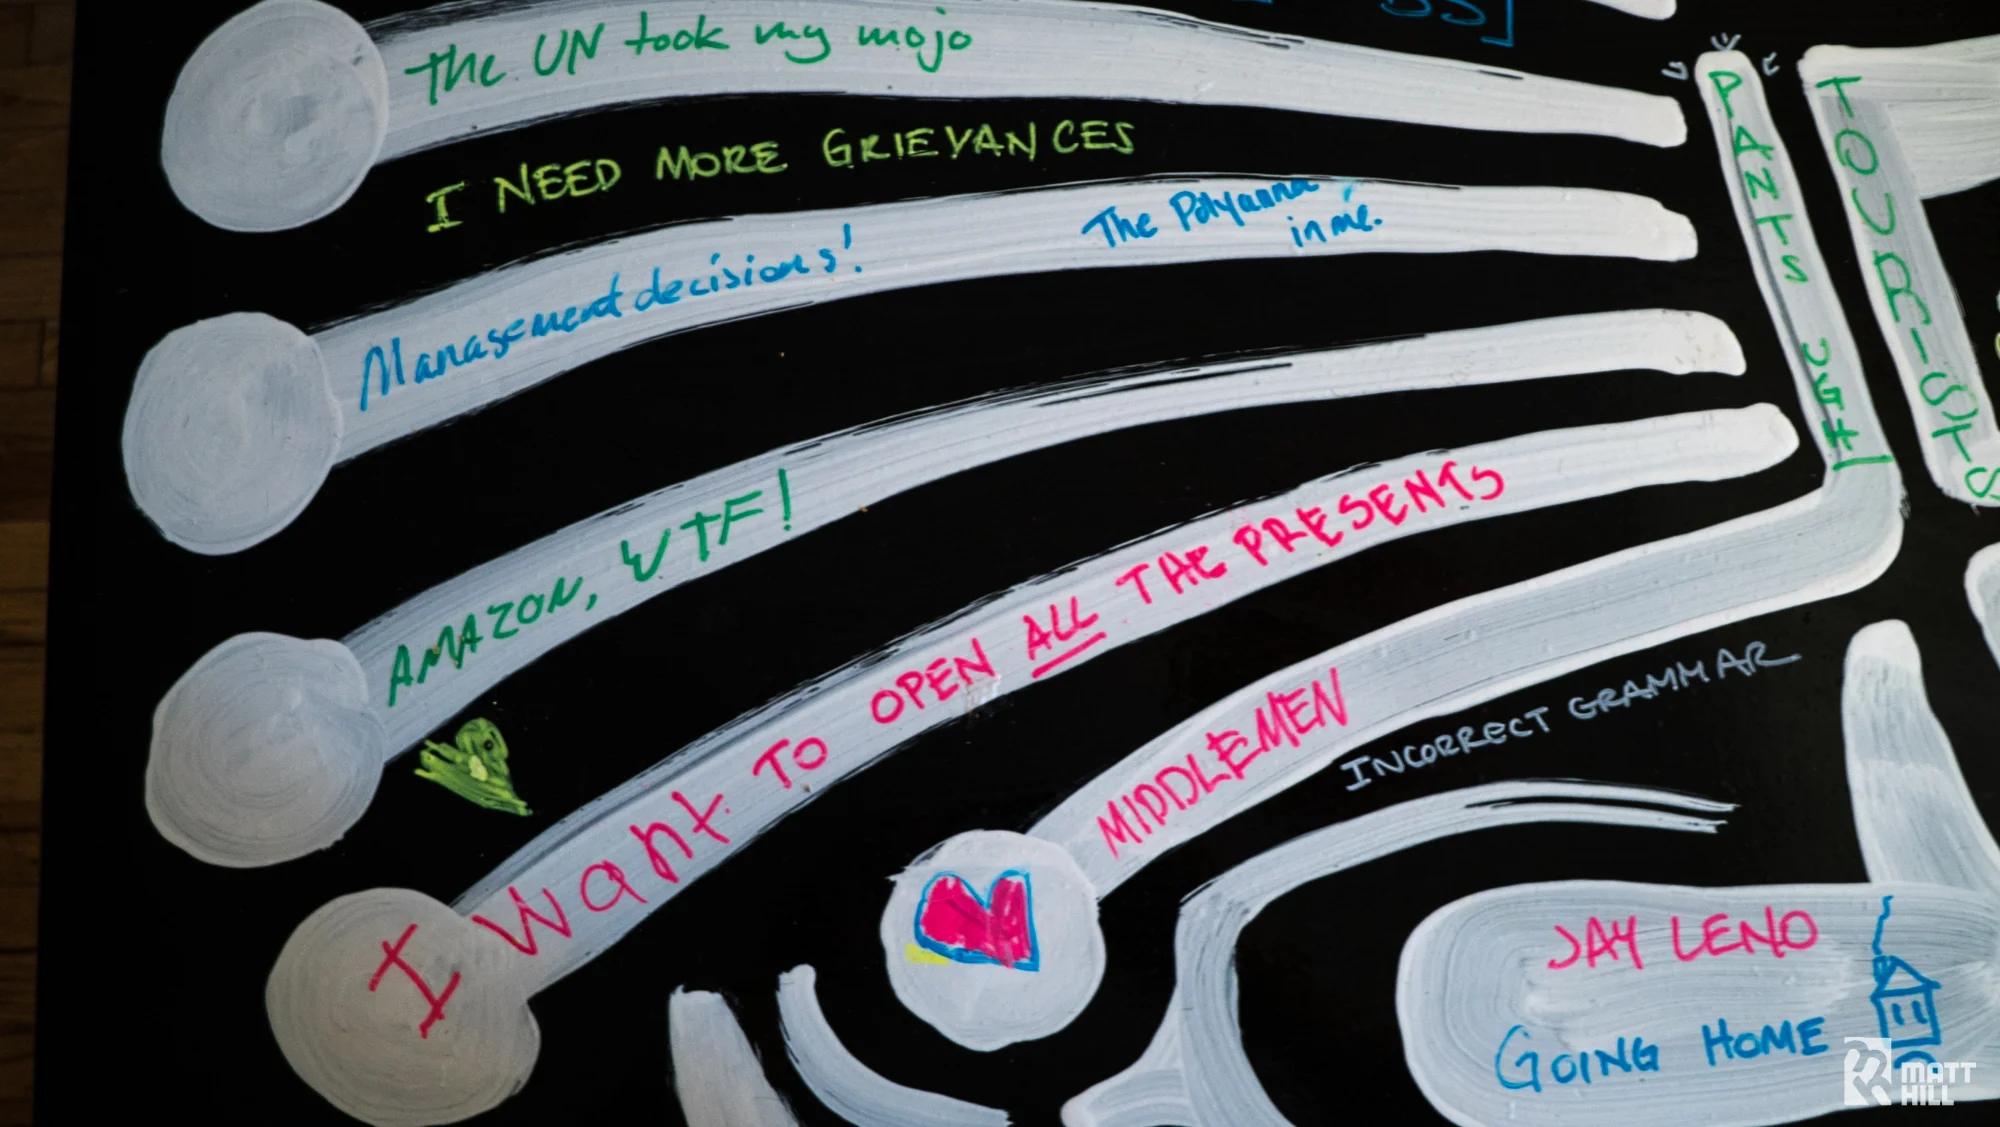 The UN took my mojo
I NEED MORE GRIEVANCES
Management decisions!
The Polyanna
in me.
AMAZON, WTF!
I Want TO OPEN ALL THE PRESENTS
MIDDLEMEN
INCORRECT GRAMMAR
PANTS UGH!
TOURISTS
JAY LENO
GOING HOME
MATT
HILL